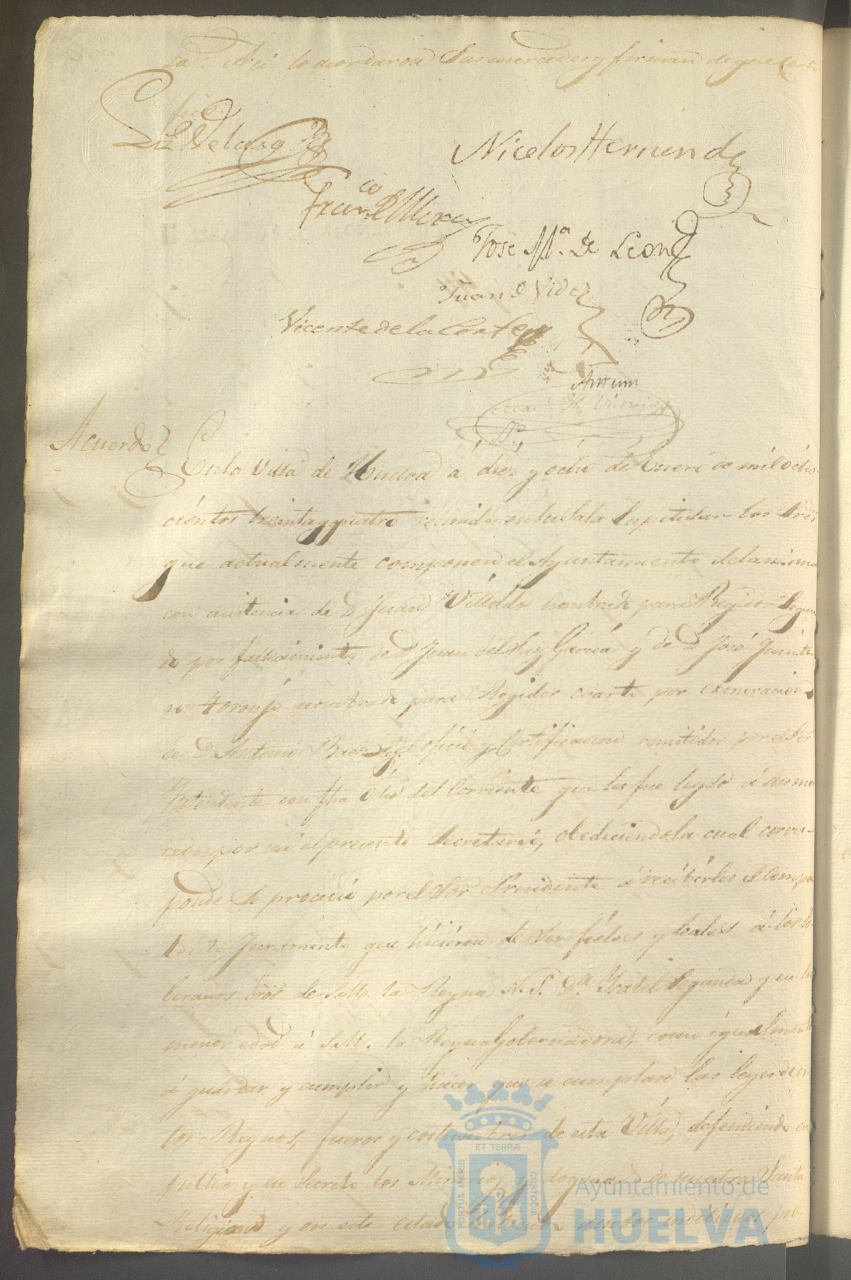 sa. Asi lo acordaron Sus mercedes y firman de que certi
fico
Luis Velasq
Nicolas Hernand
Franco. Mora
Jose Ma. de Leon
Juan de Vides
Vicente de la Corte
Antemi
Acuerdo
En la Villa de Huelva á dies y ocho de Enero de mil ocho
cientos treinta y quatro reunidos en su Sala Capitular los Sres
que actualmente componen el Ayuntamiento de la misma
con asistencia de Dn Juan nombrado para Regidor Segun
do por fallecimiento de Dn Juan de la Garcia y de Dn José
nombrado para Regidor cuarto por exoneracion
de Dn Antonio oficio y Certificacion remitidos por el Sor
Intendente con fha del Corriente que les fue leydo á sus mer
cedes por mi el presente Secretario, obedeciendola cual corres-
ponde se procedió por el Sor Presidente á recibirles el compe
Juramento que hicieron de ser fieles y leales á los So
beranos de S.M. la Reyna N. S. Da. Isabel Segunda y en su
menor edad á S.M. la Reyna Gobernadora, como igualmente
á guardar y cumplir y hacer que se cumplan las leyes de es
tos Reynos, fueros y costumbres de esta Villa, defendiendo en
publico y en Secreto los Misterios y dogmas de nuestra Santa
Religion y en este estado
ET TERRÆ
PORTUS MARIS
CUSTODIA
Ayuntamiento de
HUELVA